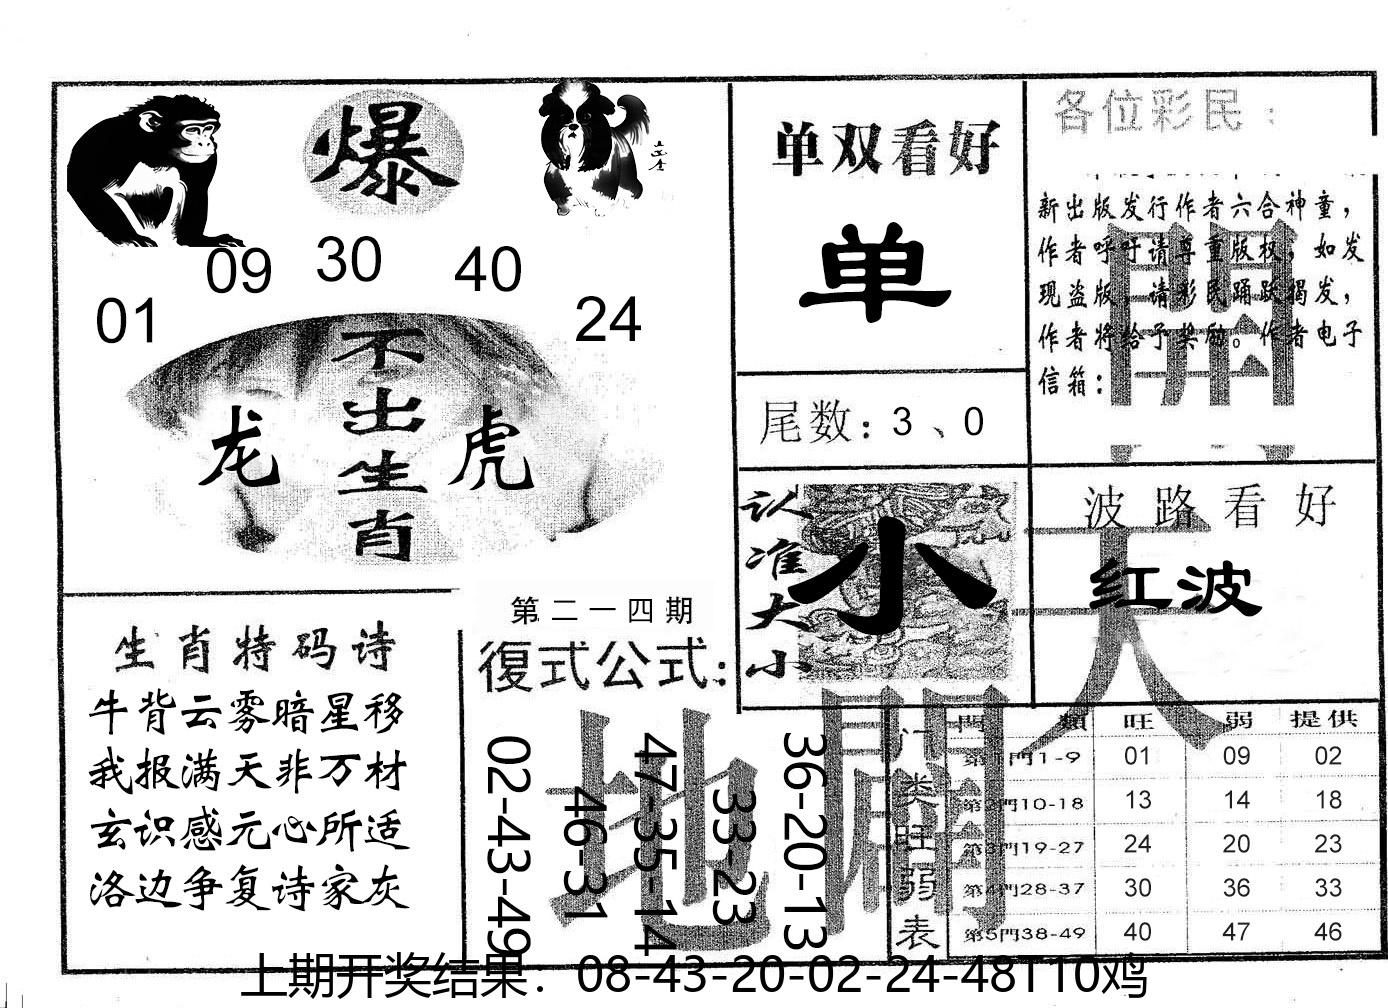 爆
09 30 40
01 24
不出生肖
龙 虎
单双看好
单
尾数: 3 、0
认准大小
小
各位彩民:
新出版发行作者六合神童,
作者呼吁请尊重版权, 如发
现盗版, 请彩民踊跃揭发,
作者将给予奖励。作者电子
信箱:
波路看好
红波
生肖特码诗
牛背云雾暗星移
我报满天非万材
玄识感元心所适
洛边争复诗家灰
第二一四期
復式公式:
02-43-49
46-31
47-35-14
33-23
36-20-13
天
地
開
门类旺弱表
門 類 旺 弱 提供
第1門1-9 01 09 02
第2門10-18 13 14 18
第3門19-27 24 20 23
第4門28-37 30 36 33
第5門38-49 40 47 46
上期开奖结果: 08-43-20-02-24-48T10鸡